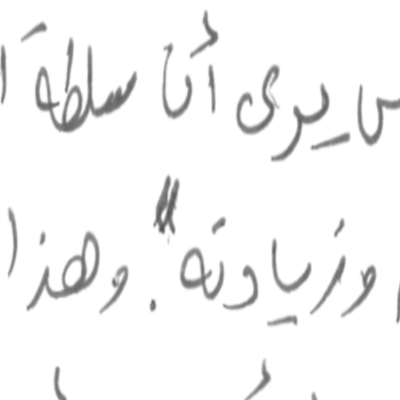 يرى أن سلطة
وزيادته". وهذا